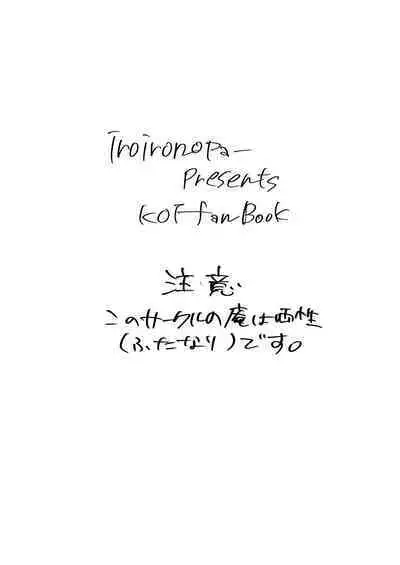 Iroironopa—
Presents
KOF fan Book
注意
このサークルの庵は両性
(ふたなり)です。